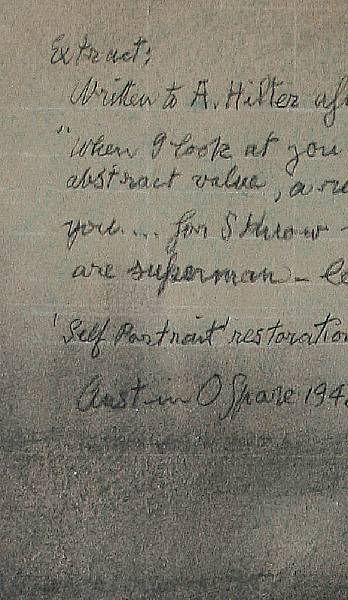 Extract;
Written to A. Hitler af
"when I look at you
abstract value, a
you.... for I know
are superman – le
'Self Portrait' restoration
Austin O Spare 194